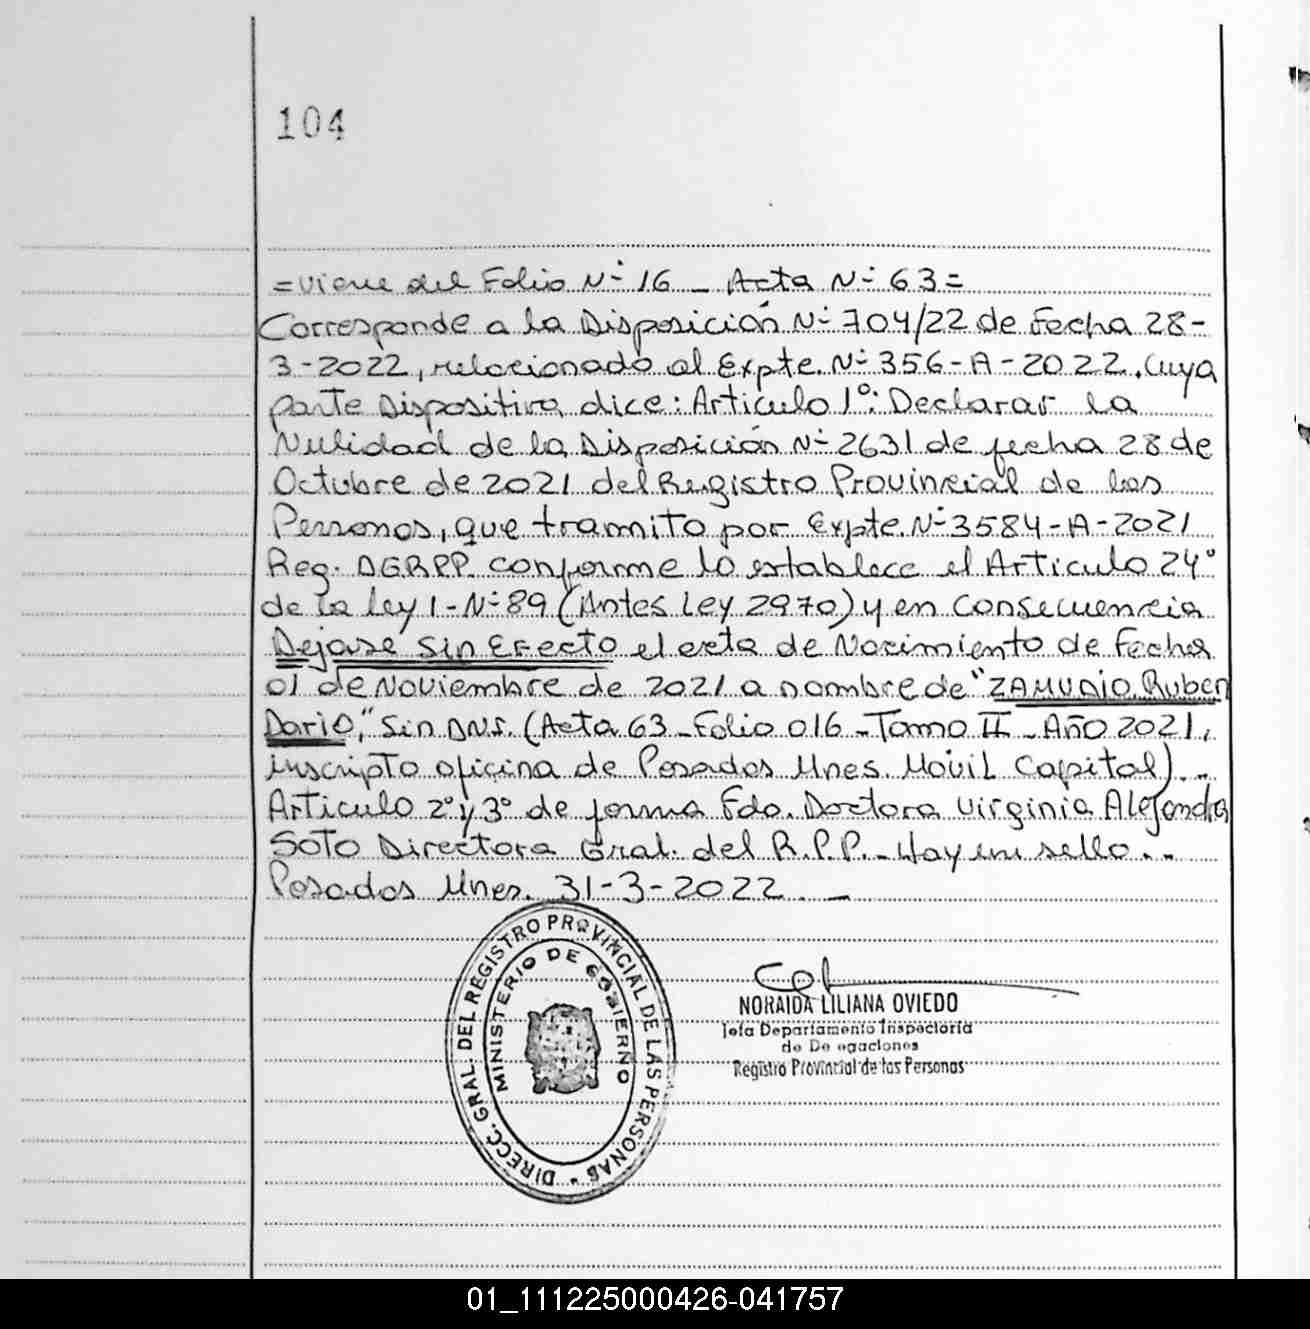 104
=Viene del Folio Nº 16 - Acta Nº 63=
Corresponde a la Disposición Nº 704/22 de Fecha 28-
3-2022, relacionado al Expte. Nº 356-A-2022. Cuya
parte Dispositiva dice: Articulo 1º: Declarar la
Nulidad de la Disposición Nº 2631 de fecha 28 de
Octubre de 2021 del Registro Provincial de las
Personas, que tramito por Expte. Nº 3584-A-2021
Reg. DGRPP. conforme lo establece el Articulo 24º
de la Ley I-Nº 89 (Antes Ley 2970) y en Consecuencia
Dejase Sin Efecto el acta de Nacimiento de Fecha
01 de Noviembre de 2021 a nombre de "ZAMUDIO Ruben
Dario," Sin DNI. (Acta 63 - Folio 016 - Tomo II - Año 2021,
inscripto oficina de Posadas Mnes. Movil Capital)..
Articulo 2º y 3º de forma Fdo. Doctora Virginia Alejandra
SOTO Directora Gral. del R.P.P. - Hay un sello..
Posadas Mnes. 31-3-2022. -
DIRECC. GRAL. DEL REGISTRO PROVINCIAL DE LAS PERSONAS
MINISTERIO DE GOBIERNO
NORAIDA LILIANA OVIEDO
Jefa Departamento Inspectoria
de De egaciones
Registro Provincial de las Personas
01_111225000426-041757